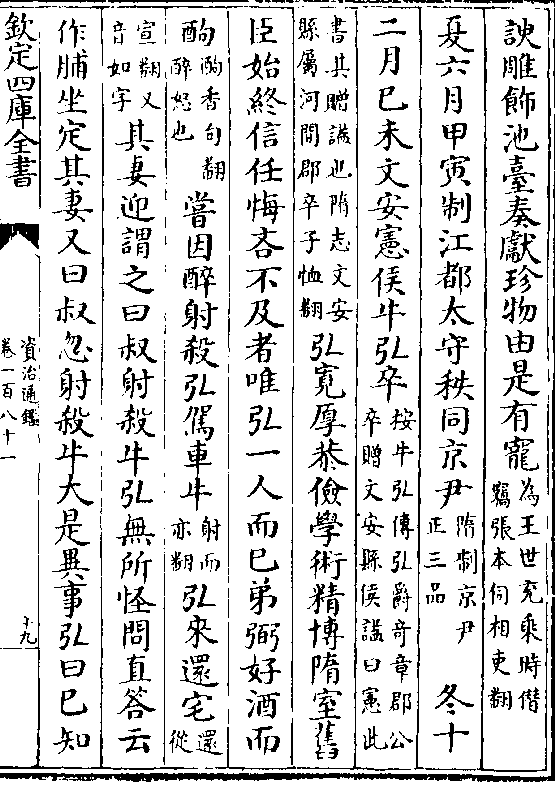 諛雕飾池臺奏獻珍物由是有寵為王世充乘時僭竊張本伺相吏翻
夏六月甲寅制江都太守秩同京尹隋制京尹正三品 冬十
二月已未文安憲侯牛弘卒按牛弘傳弘爵竒章郡公卒贈文安縣侯諡曰憲此
書其贈諡也隋志文安縣屬河間郡卒子恤翻弘寛厚恭儉學術精博隋室舊
臣始終信任悔吝不及者唯弘一人而已弟弼好酒而
酗酗香句翻醉怒也嘗因醉射殺弘駕車牛射而亦翻弘來還宅還從
宣翻又音如字其妻迎謂之曰叔射殺牛弘無所怪問直答云
作脯坐定其妻又曰叔忽射殺牛大是異事弘曰已知
欽定四庫全書
資治通鑑
卷一百八十一
十九